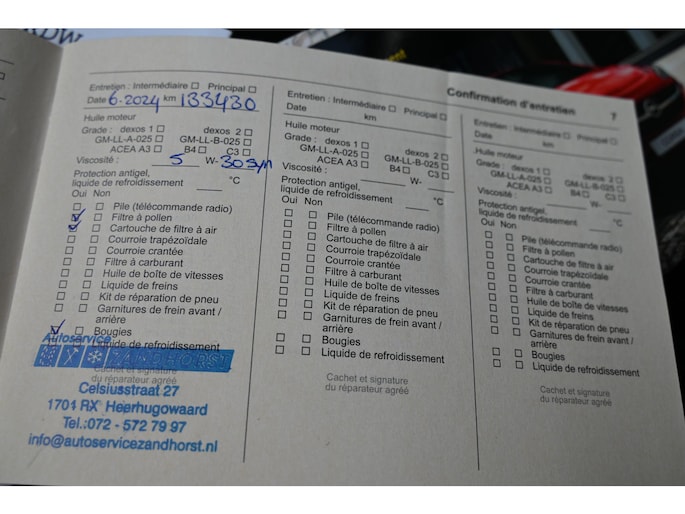 RDW
Confirmation d'entretien
7
Entretien : Intermédiaire □ Principal □
Date 6.2024 km 133430
Huile moteur
Grade : dexos 1 □ dexos 2 □
GM-LL-A-025 □ GM-LL-B-025 □
ACEA A3 □ B4 □ C3 □
Viscosité : 5 W- 30 syn
Protection antigel,
liquide de refroidissement ____ °C
Oui Non
Pile (télécommande radio)
Filtre à pollen
Cartouche de filtre à air
Courroie trapézoïdale
Courroie crantée
Filtre à carburant
Huile de boîte de vitesses
Liquide de freins
Kit de réparation de pneu
Garnitures de frein avant /
arrière
Bougies
Liquide de refroidissement
Cachet et signature
du réparateur agréé
Autoservice
ZANDHORST
Celsiusstraat 27
1704 RX Heerhugowaard
Tel.:072 - 572 79 97
info@autoservicezandhorst.nl
Entretien : Intermédiaire □ Principal □
Date km
Huile moteur
Grade : dexos 1 □ dexos 2 □
GM-LL-A-025 □ GM-LL-B-025 □
ACEA A3 □ B4 □ C3 □
Viscosité : ____ W- ____
Protection antigel,
liquide de refroidissement ____ °C
Oui Non
Pile (télécommande radio)
Filtre à pollen
Cartouche de filtre à air
Courroie trapézoïdale
Courroie crantée
Filtre à carburant
Huile de boîte de vitesses
Liquide de freins
Kit de réparation de pneu
Garnitures de frein avant /
arrière
Bougies
Liquide de refroidissement
Cachet et signature
du réparateur agréé
Entretien : Intermédiaire □ Principal □
Date km
Huile moteur
Grade : dexos 1 □ dexos 2 □
GM-LL-A-025 □ GM-LL-B-025 □
ACEA A3 □ B4 □ C3 □
Viscosité : ____ W- ____
Protection antigel,
liquide de refroidissement ____ °C
Oui Non
Pile (télécommande radio)
Filtre à pollen
Cartouche de filtre à air
Courroie trapézoïdale
Courroie crantée
Filtre à carburant
Huile de boîte de vitesses
Liquide de freins
Kit de réparation de pneu
Garnitures de frein avant /
arrière
Bougies
Liquide de refroidissement
Cachet et signature
du réparateur agréé